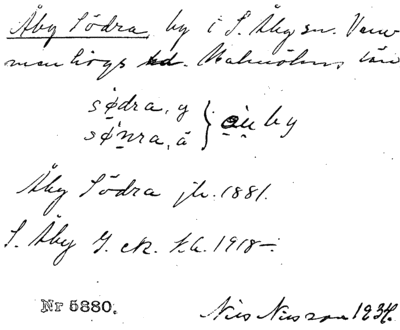 Åby Södra, by i S. Åby sn. Vem-
menhögs hd. Malmöhus län
sø̀dra, y
sø̀nra, å } àu by
Åby Södra jb. 1881.
S. Åby G. ek. k.a. 1918-.
Nr 5880. Nils Nilsson 1934.